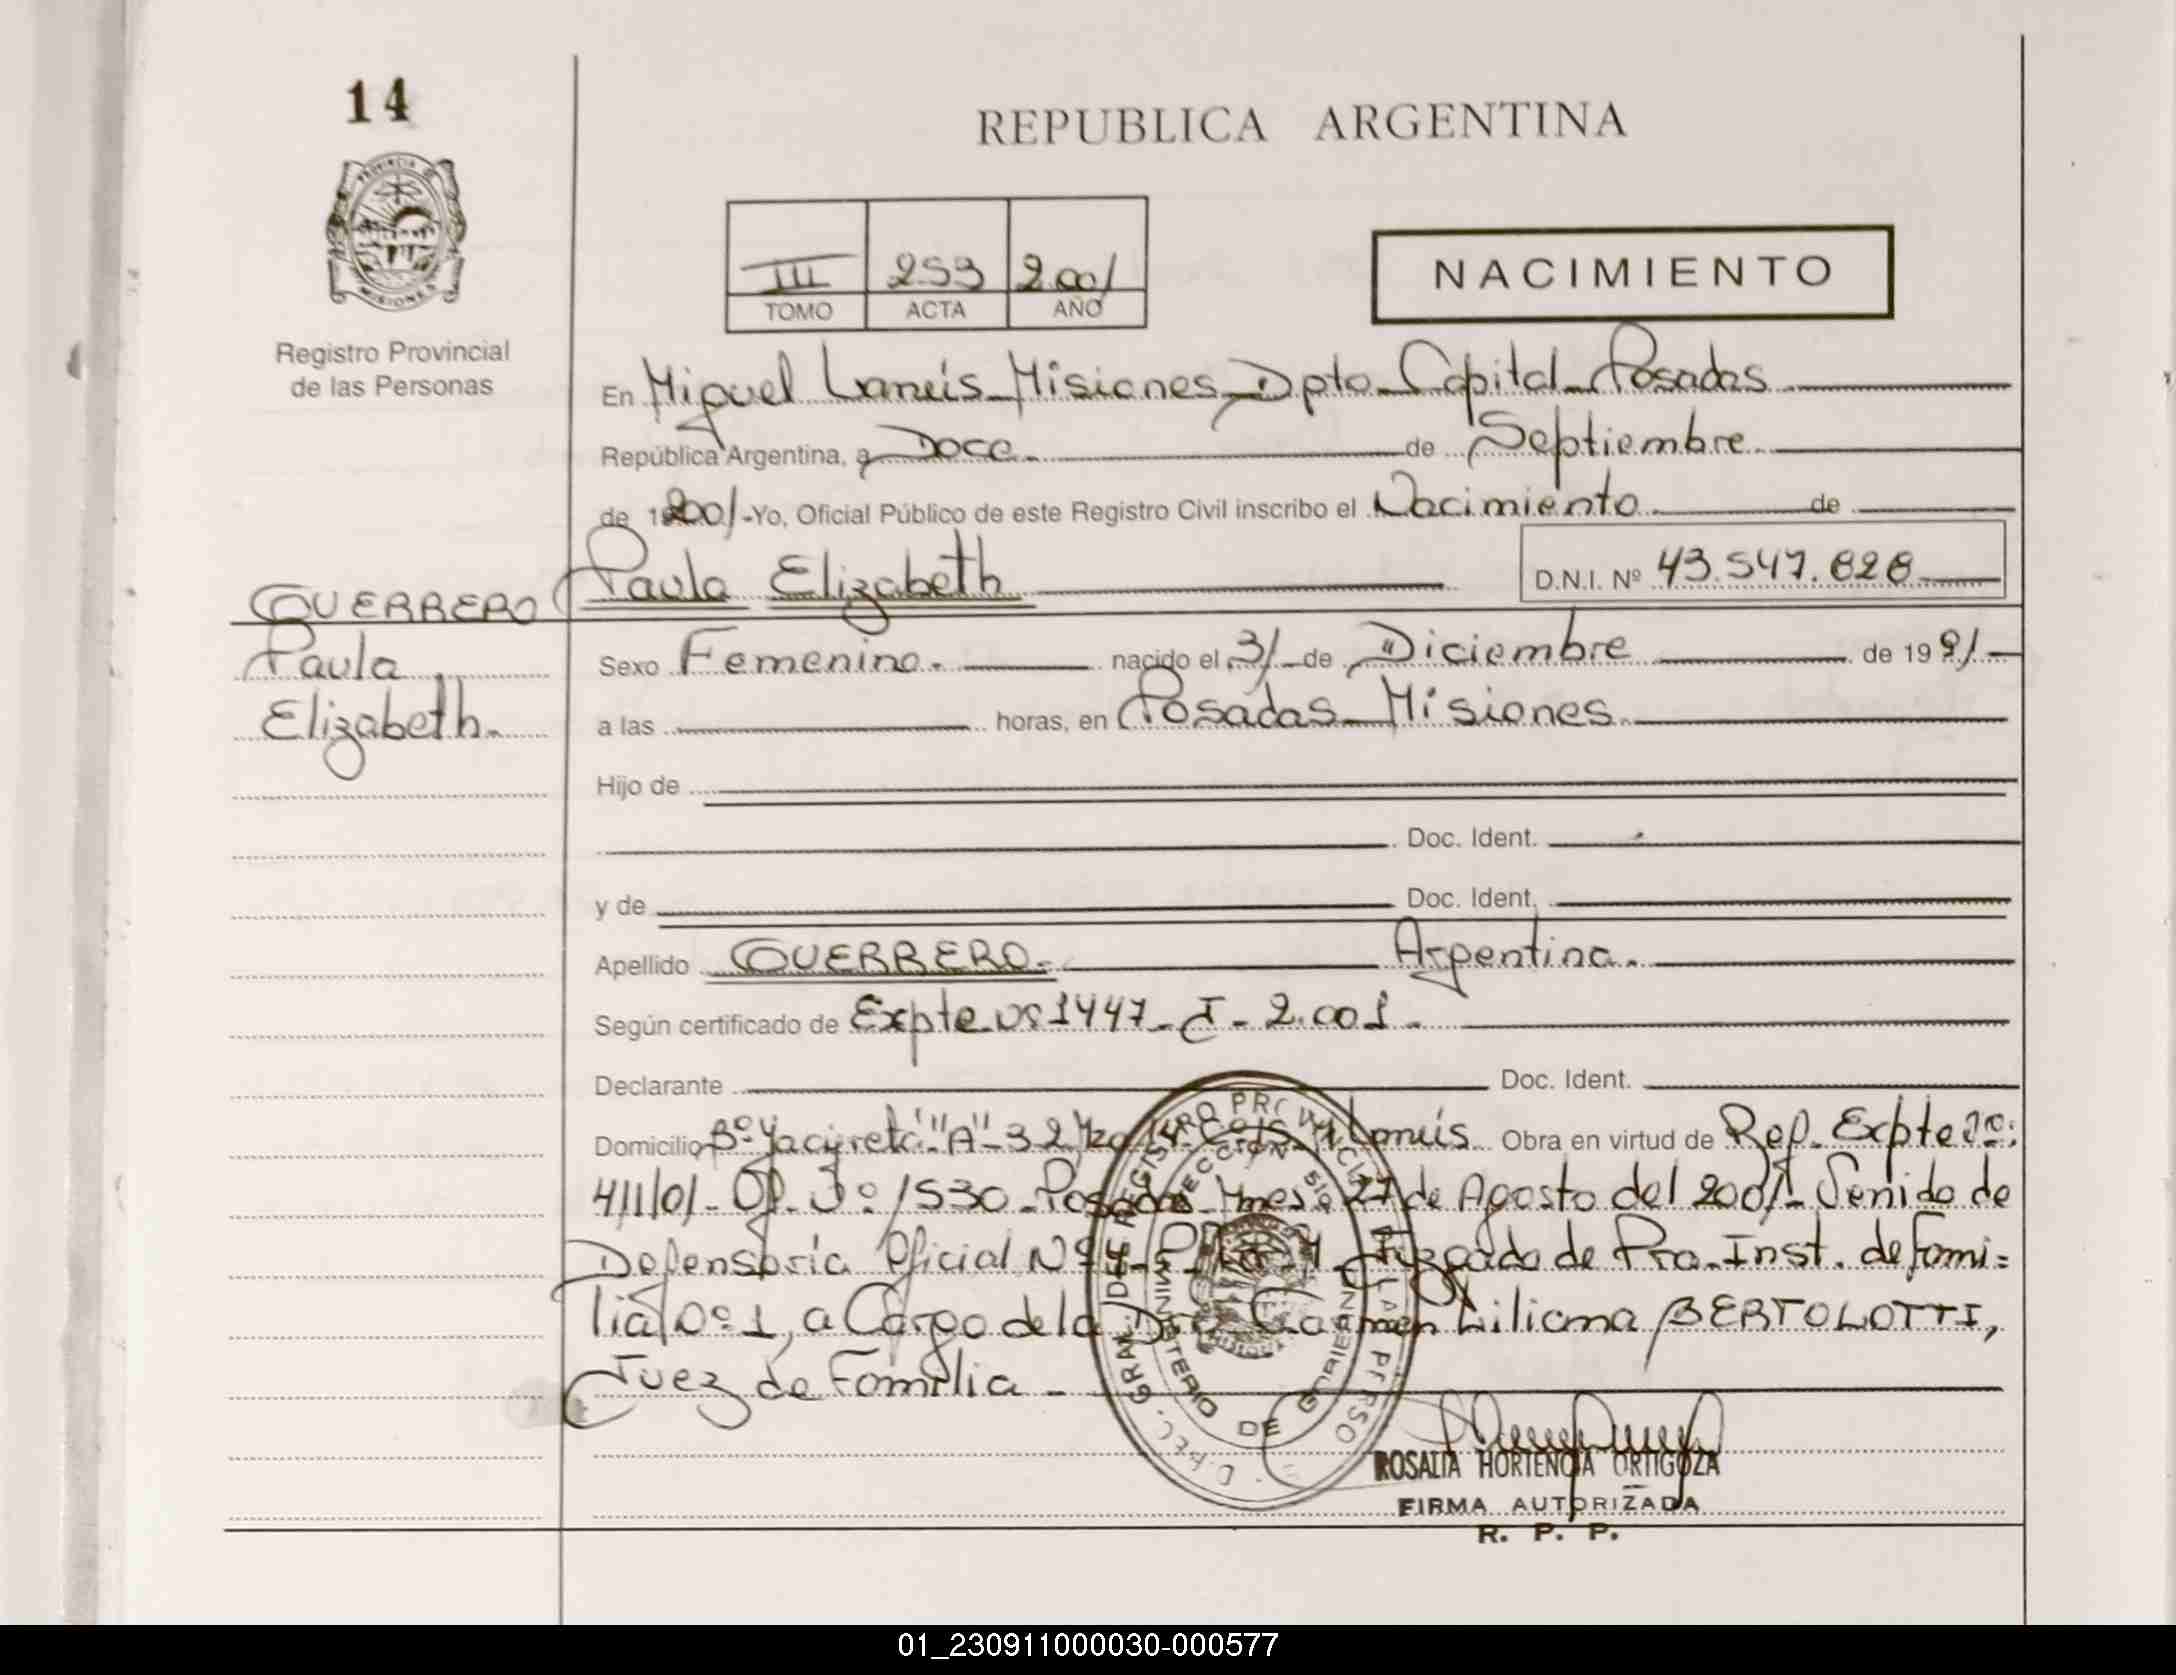 14
REPUBLICA ARGENTINA
PROVINCIA DE
MISIONES
Registro Provincial
de las Personas
III 253 2.001
TOMO ACTA AÑO
NACIMIENTO
En Miguel Lanús - Misiones - Dpto - Capital - Posadas
República Argentina, a Doce. de Septiembre
de 1 2001 -Yo, Oficial Público de este Registro Civil inscribo el Nacimiento de
Paula Elizabeth D.N.I. Nº 43.547.828
GUERRERO
Paula
Elizabeth.
Sexo Femenino. nacido el 31 de Diciembre de 19 91
a las horas, en Posadas - Misiones
Hijo de
Doc. Ident.
y de Doc. Ident.
Apellido GUERRERO. Argentina.
Según certificado de Expte nº 1447 - J - 2.001.
Declarante Doc. Ident.
Domicilio Bº Yacyretá "A" - 32 Lanús Obra en virtud de Rep. Expte nº:
411/01 - Of. Jº 1530 - Posadas - Mnes, 27 de Agosto del 2001 - Venido de
Defensoría Oficial Nº 4 - Juzgado de Pra. Inst. de Fami=
lia Nº 1, a Cargo de la Dra. Carmen Liliana BERTOLOTTI,
Juez de Familia -
ROSALIA HORTENCIA ORTIGOZA
FIRMA AUTORIZADA
R. P. P.
01_230911000030-000577